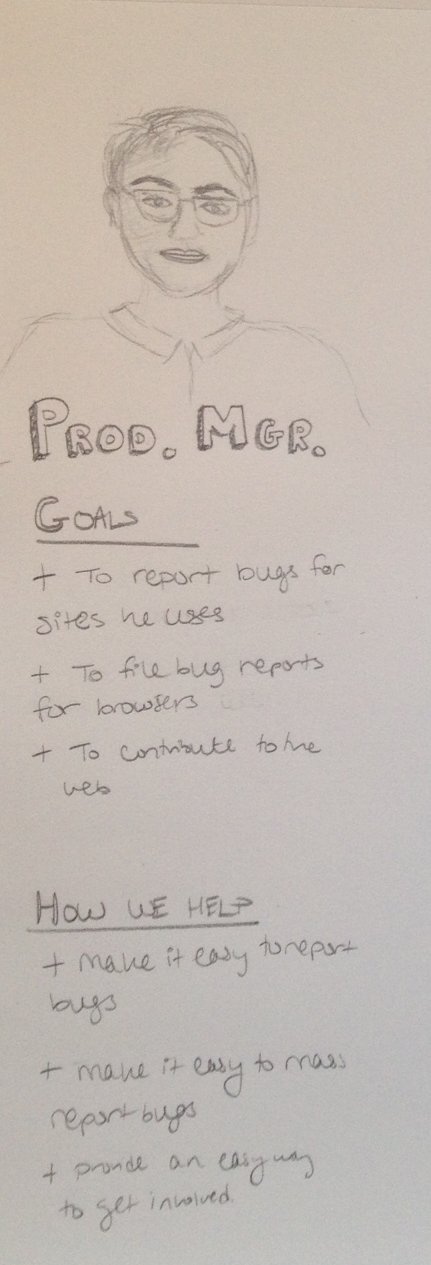 PROD. MGR.
GOALS
+ To report bugs for
sites he uses
+ To file bug reports
for browsers
+ To contribute to the
web
HOW WE HELP
+ make it easy to report
bugs
+ make it easy to mass
report bugs
+ provide an easy way
to get involved.